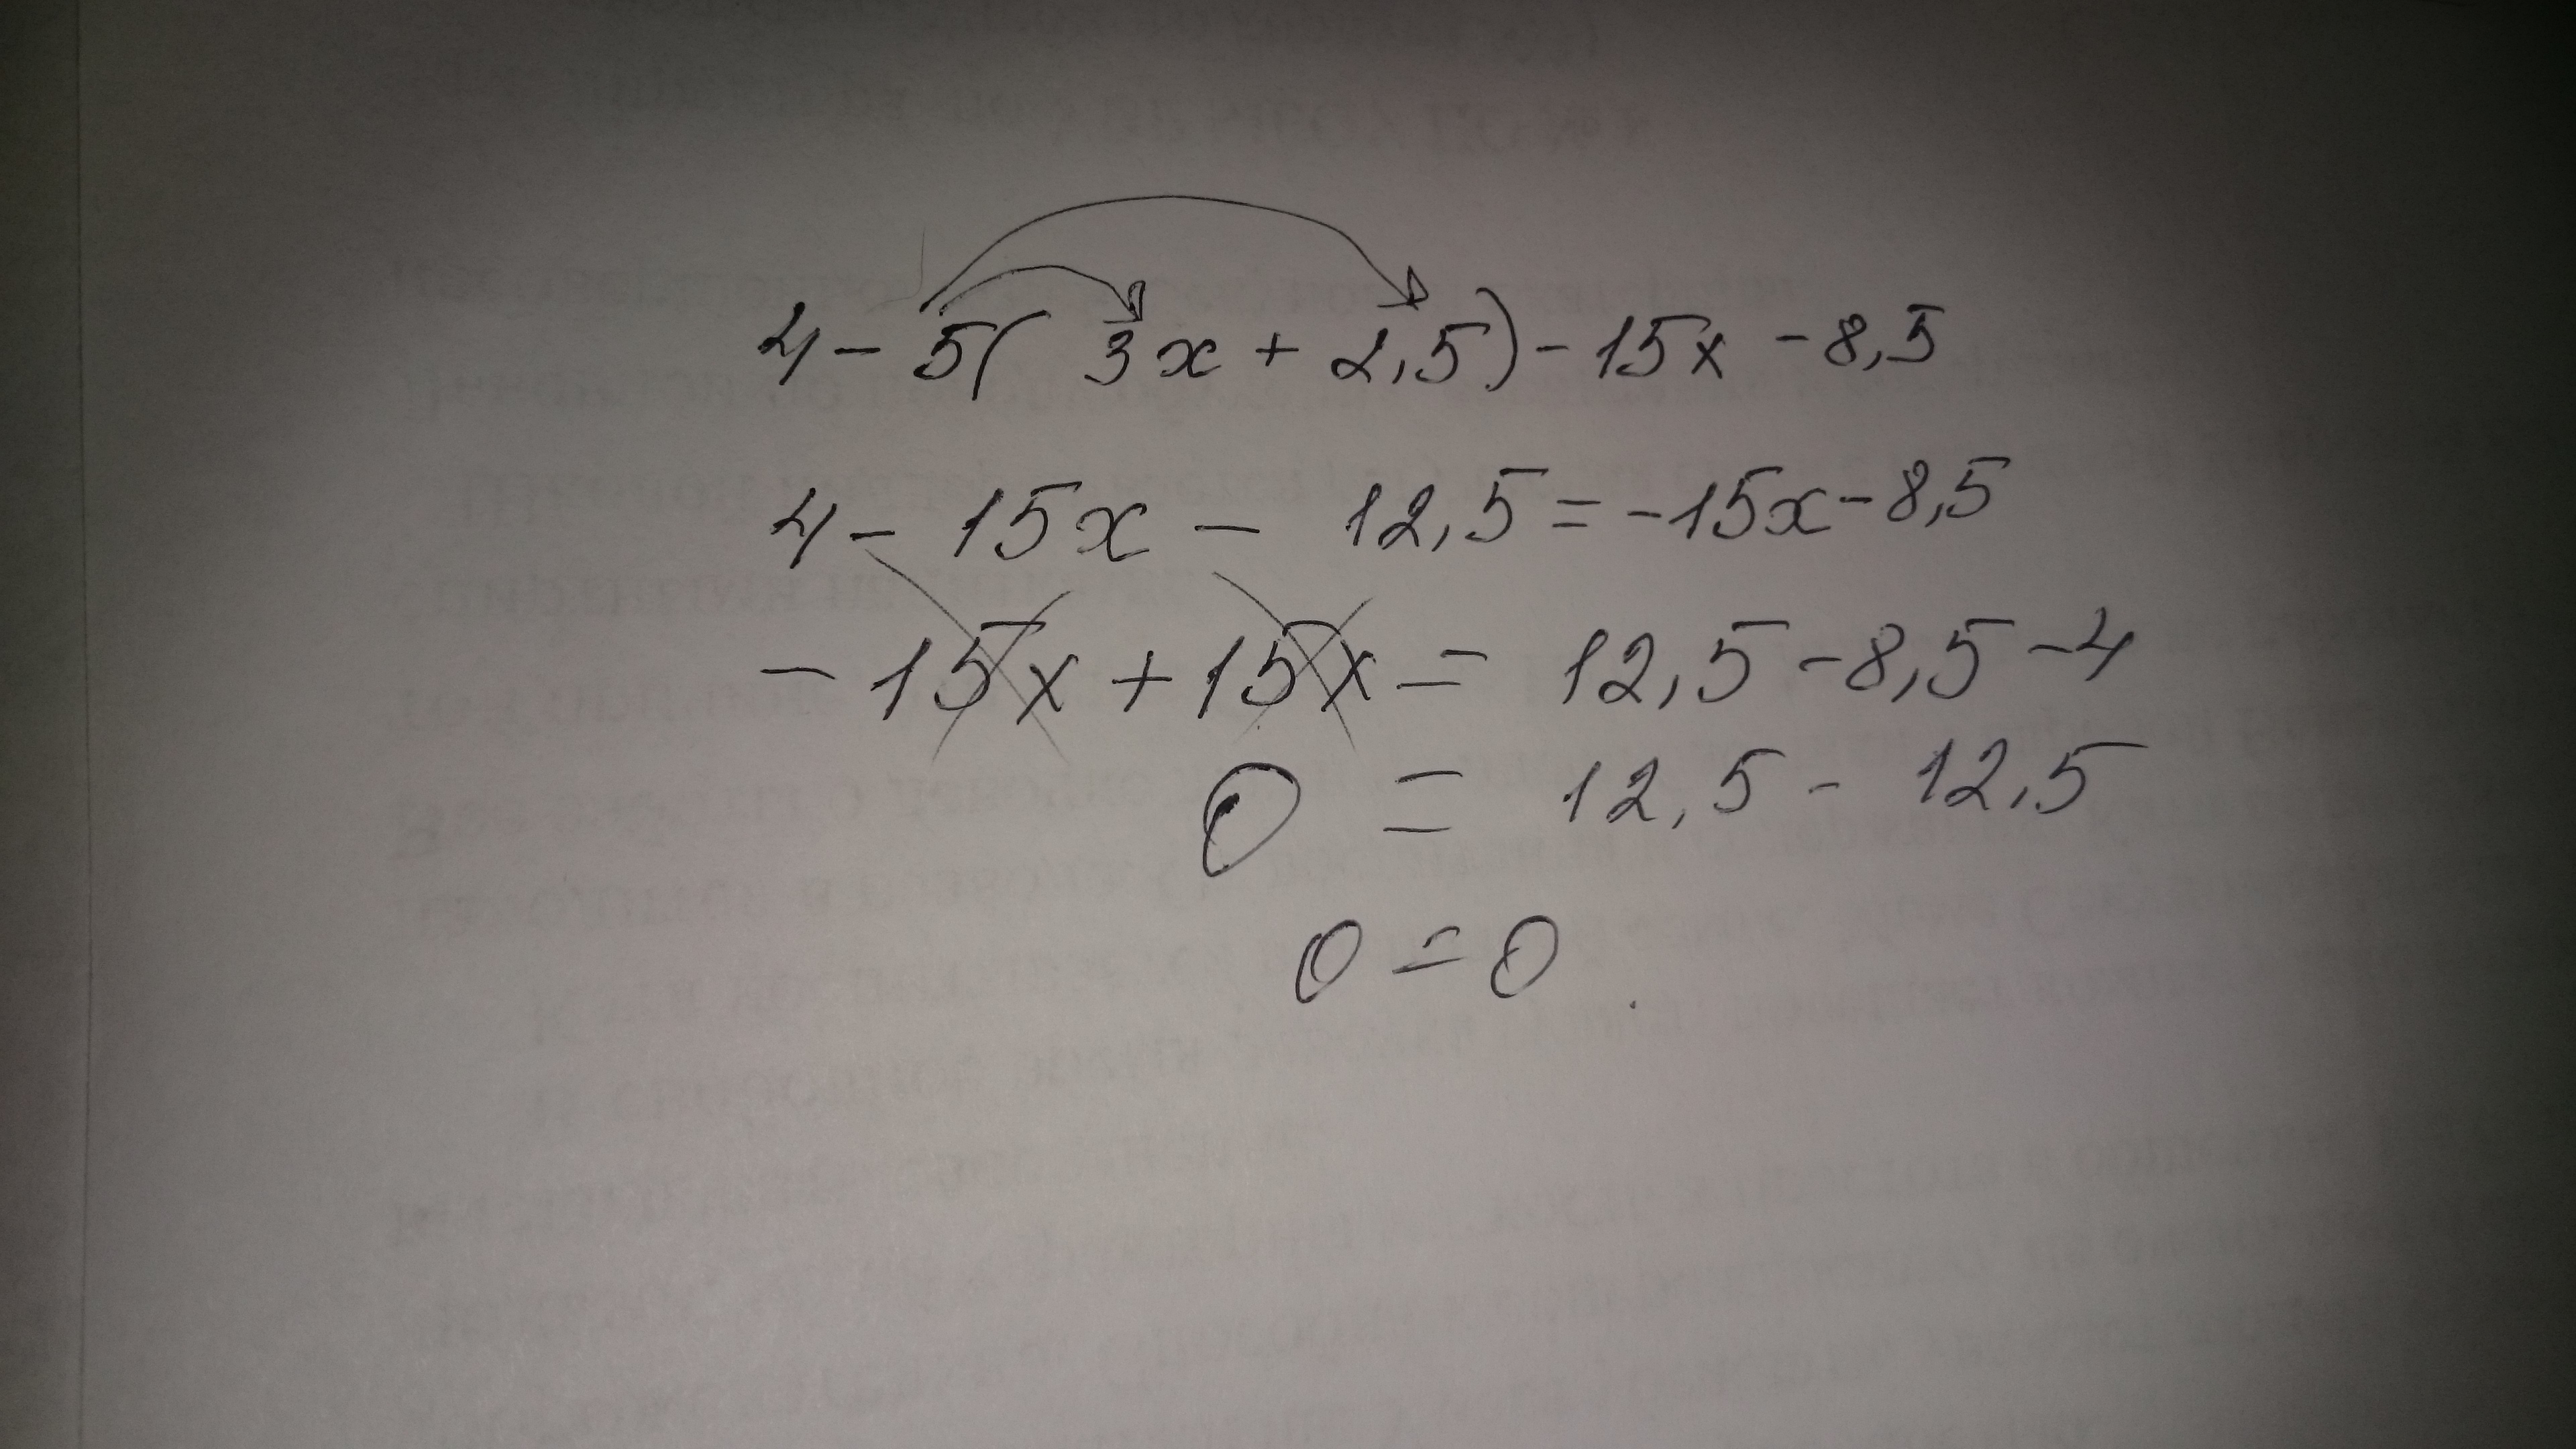 4 - 5( 3x + 2,5) - 15x - 8,5
4 - 15x - 12,5 = -15x - 8,5
- 15x + 15x = 12,5 - 8,5 - 4
0 = 12,5 - 12,5
0 = 0